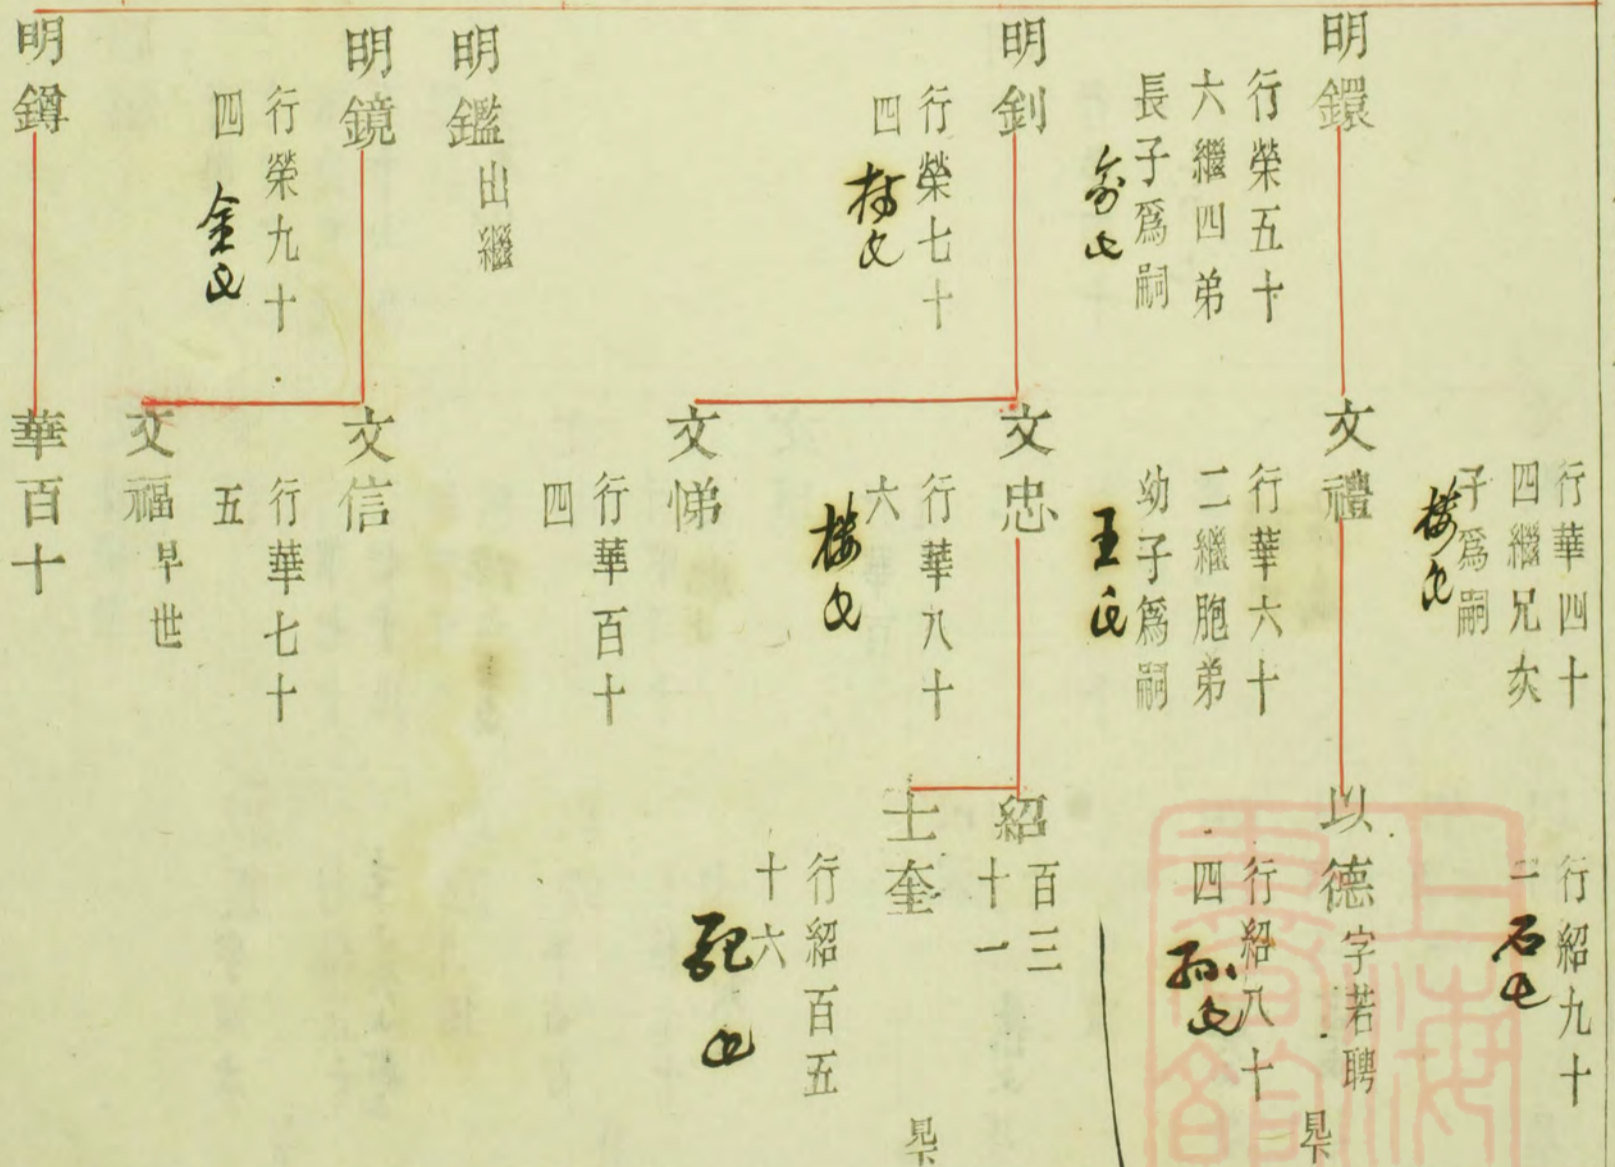 明鐶
行榮五十
六繼四弟
長子爲嗣
俞氏
明釗
行榮七十
四
明鑑出繼
明鏡
行榮九十
四
金氏
明鐏
行華四十
四繼兄次
子爲嗣
樓氏
文禮
行華六十
二繼胞弟
幼子爲嗣
王氏
文忠
行華八十
六
樓氏
文悌
行華百十
四
文信
行華七十
五
文福早世
華百十
行紹九十
二
石氏
以德字若聘
行紹八十
四
孫氏
見下
紹百三
十一
士奎
行紹百五
十六
見下
上海
圖書館